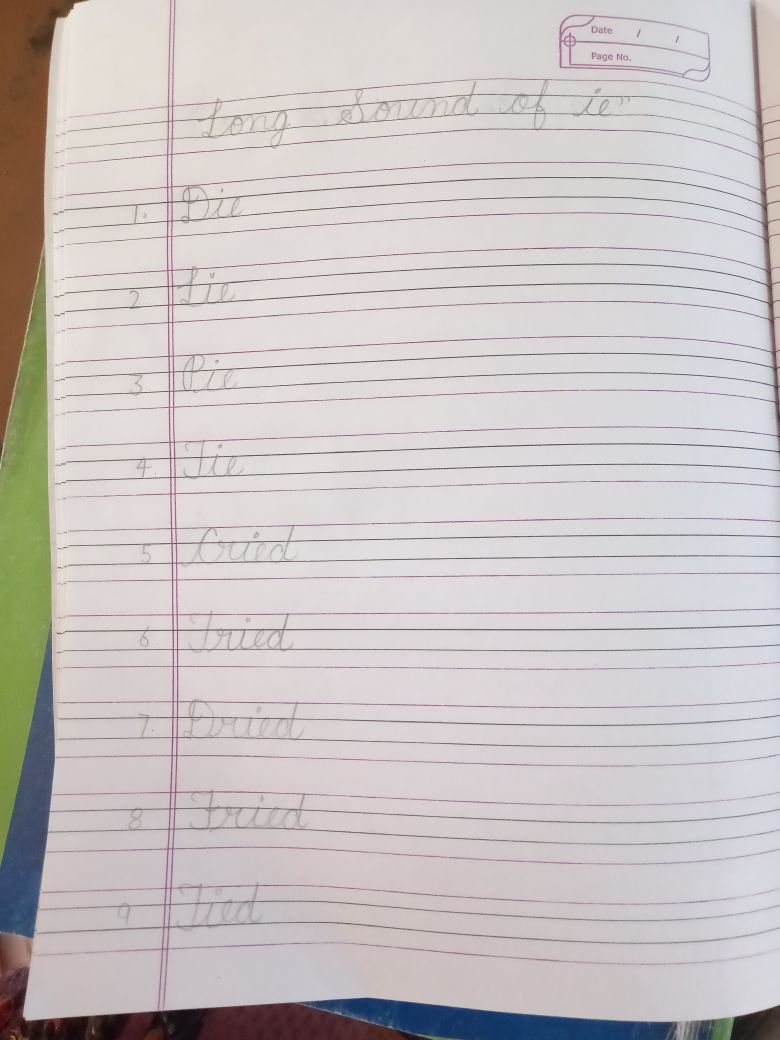 Date / /
Page No.
Long Sound of ie"
1. Die
2. Lie
3. Pie
4. Tie
5 Cried
6. Tried
7. Dried
8 Fried
9 Tied